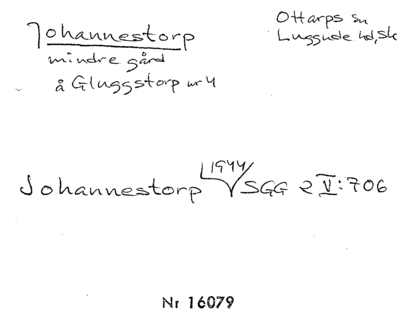 Johannestorp
mindre gård
å Gluggstorp nr 4
Ottarps sn
Luggude hd, Sk
Johannestorp 1944 SGG 2 V:706
Nr 16079